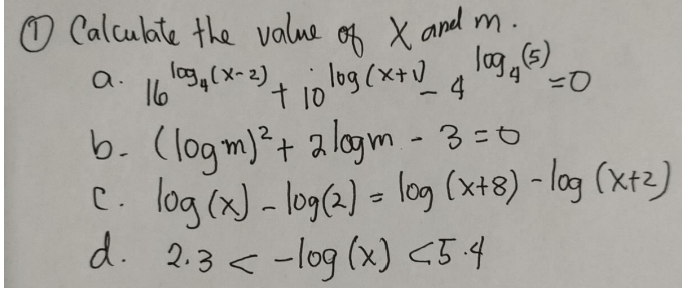 ① Calculate the value of X and m.
a. 16^log₄(x-2) + 10^log(x+1) - 4^log₄(5) = 0
b. (log m)² + 2 log m - 3 = 0
c. log(x) - log(2) = log(x+8) - log(x+2)
d. 2.3 < -log(x) < 5.4